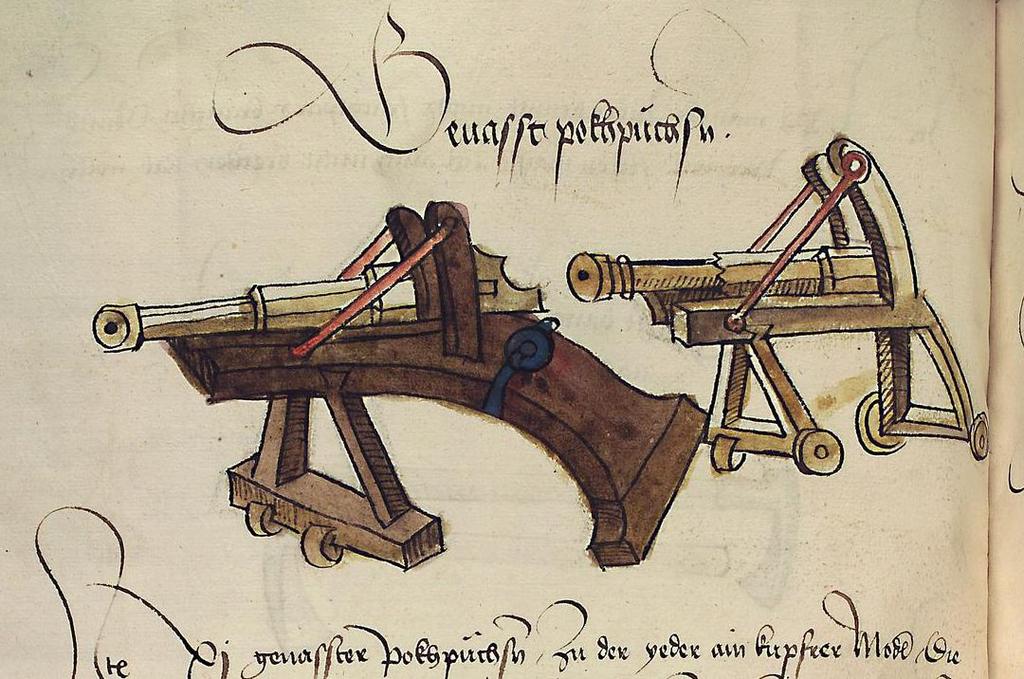 Genasst pokhpüchsn.
Ite xj genasster Pokhpüchsn Zu der yeder ain kupfrer Modl Die